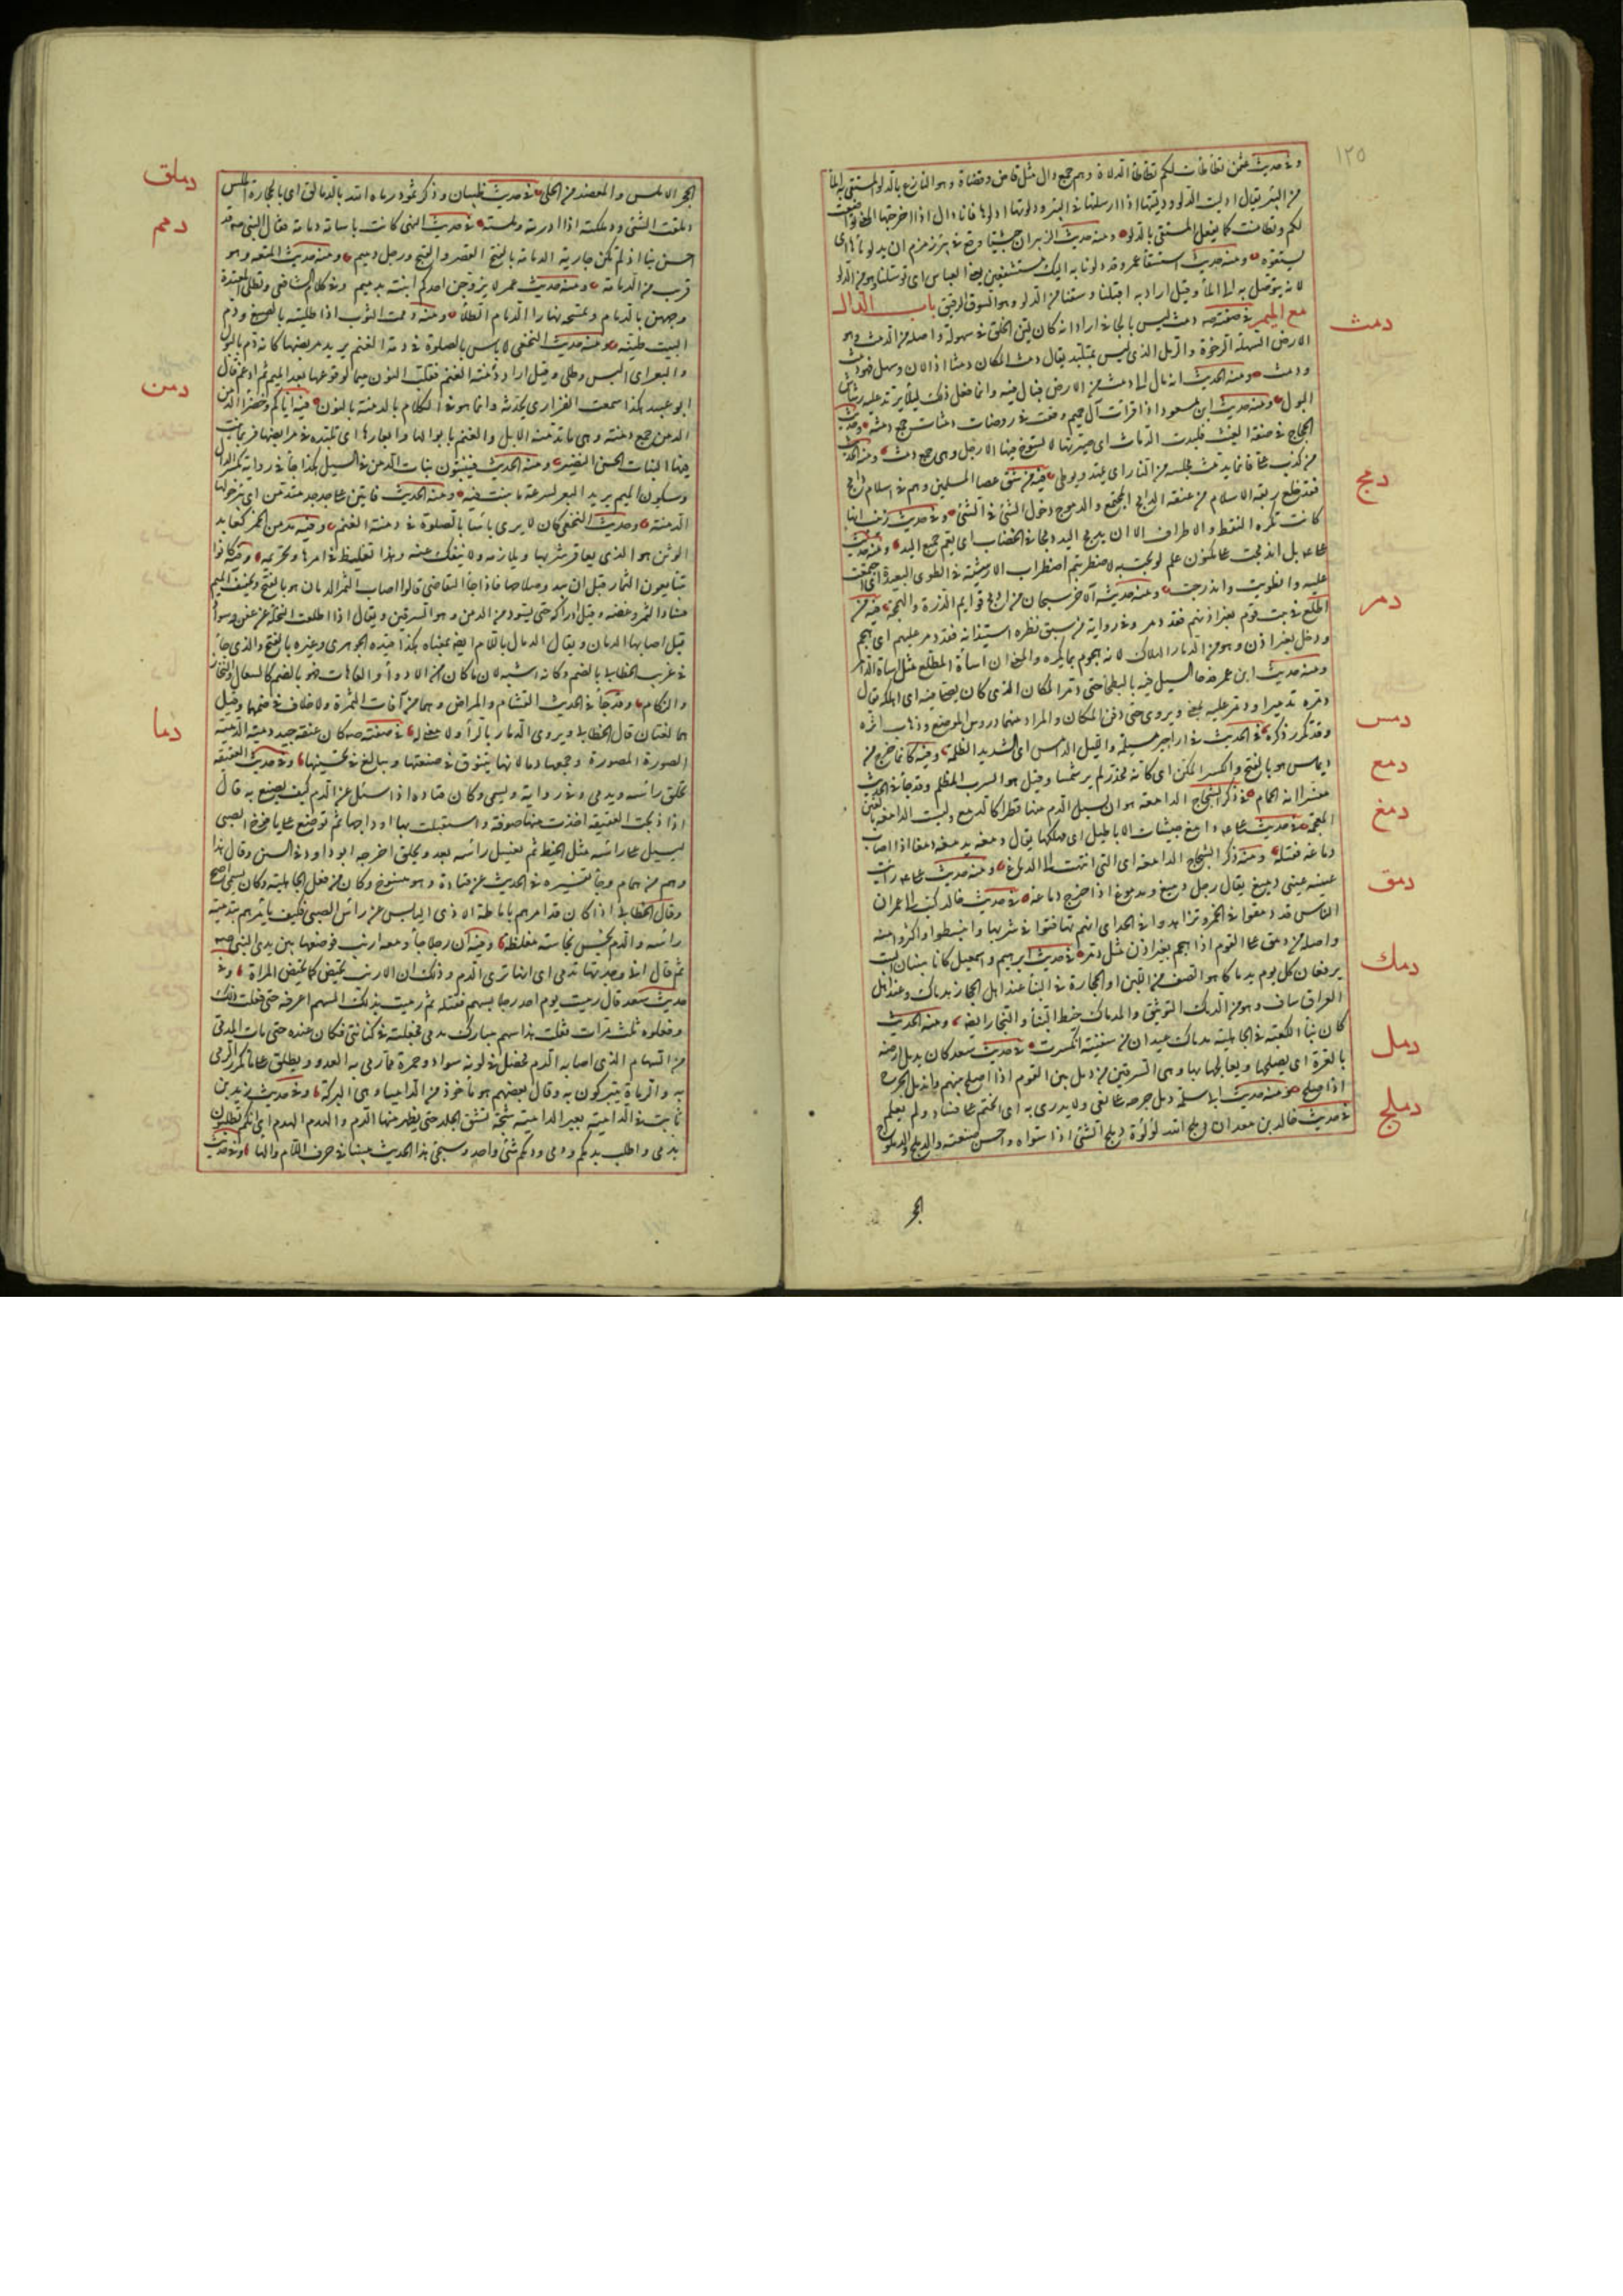 ١٢٥
وفى حديث عثمن تطأطأت لكم تطأطأ الدلاة وهم جمع دال مثل قاض وقضاة وهو النازع بالدلو المستقى به الماء
من البئر يقال ادليت الدلو ودليتها اذا ارسلتها فى البئر ودلوتها ادلوها فانا دال اذا اخرجتها المعنى تواضعت
لكم وتطامنت كما يفعل المستقى بالدلو ومنه حديث ابن الزبير ان حبشيا وقع فى بئر زمزم ان يدلوا ماءها اى
يستقوه ومنه حديث استسقاء عمر وقد دلونا به اليك مستشفعين يعنى العباس اى توسلنا وهو من الدلو
لانه يتوصل به الى الماء وقيل اراد به اقبلنا وسقنا من الدلو وهو السوق الرفيق باب الدال
مع الميم فى صفته صه دمث ليس بالجافى اراد انه كان لين الخلق فى سهولة واصله من الدمث وهو
الارض السهلة الرخوة والرمل الذى ليس بمتلبد يقال دمث المكان دمثا اذا لان وسهل فهو دمث
ودمث ومنه الحديث انه مال الى دمث من الارض فبال فيه وانما فعل ذلك ليلا يرتد عليه رشاش
البول ومنه حديث ابن مسعود اذا قرأت آل حم وقعت فى روضات دمثات جمع دمثة وحديث
الحجاج فى صفة الغيث فلبدت الدماث اى صيرتها لا تسوخ فيها الارجل وهى جمع دمث ومنه الحديث
من كذب على فانما يدمث مجلسه من النار اى يمهد ويوطى فيه من شق عصا المسلمين وهم فى اسلام دامج
فقد خلع ربقة الاسلام من عنقه الدامج المجتمع والدموج دخول الشئ فى الشئ وفى حديث زينب انها
كانت تكره النقط والاطراف الا ان يدمج اليد دمجا فى الخضاب اى يعم جميع اليد ومنه حديث
على بل اندمجت على مكنون علم لو بحت به لاضطربتم اضطراب الارشية فى الطوى البعيدة اى اجتمعت
عليه وانطويت واندرجت ومنه حديثه الآخر سبحان من ادمج قوائم الذرة والهمجة فيه من
اطلع فى بيت قوم بغير اذنهم فقد دمر وفى رواية من سبق نظره استيذانه فقد دمر عليهم اى هجم
ودخل بغير اذن وهو من الدمار الهلاك لانه هجوم بما يكره والمعنى ان اساءة المطلع مثل اساءة الدامر
ومنه حديث ابن عمر فدحا السيل فيه بالبطحاء حتى دمر المكان الذى كان يصلى فيه اى اهلكه يقال
دمره تدميرا ودمر عليه بمعنى ويروى حتى دفن المكان والمراد منهما دروس الموضع وذهاب اثره
وقد تكرر ذكره فى الحديث فى اراجيز مسيلمة والليل الدامس اى الشديد الظلمة وفيه كانما خرج من
ديماس هو بالفتح والكسر الكن اى كانه مخدر لم ير شمسا وقيل هو السرب المظلم وقد جاء فى الحديث
مفسرا انه الحمام فى ذكر الشجاج الدامعة هو ان يسيل الدم منها قطرا كالدمع وليست الدامغة بالغين
المعجمة فى حديث على دامغ جيشات الاباطيل اى مهلكها يقال دمغه يدمغه دمغا اذا اصاب
دماغه فقتله ومنه ذكر الشجاج الدامغة اى التى انتهت الى الدماغ ومنه حديث على رايت
عينيه عينى دميغ يقال رجل دميغ ومدموغ اذا خرج دماغه فى حديث خالد كتب الى عمر ان
الناس قد دمقوا فى الخمر وتزاهدوا فى الحد اى انهم تهافتوا فى شربها وانبسطوا واكثروا منه
واصله من دمق على القوم اذا هجم بغير اذن مثل دمر فى حديث ابرهيم واسمعيل كانا يبنيان البيت
يرفعان كل يوم مدماكا هو الصف من اللبن او الحجارة فى البناء عند اهل الحجاز مدماك وعند اهل
العراق ساف وهو من الدمك التوثيق والمدماك خيط البناء والنجار ايضا ومنه الحديث
كان بناء الكعبة فى الجاهلية مدماك عيدان من سفينة انكسرت فى حديث سعد كان يدمل ارضه
بالعرة اى يصلحها ويعالجها بها وهى السرقين من دمل بين القوم اذا اصلح بينهم واندمل الجرح
اذا صلح ومنه حديث ابى سلمة دمل جرحه على بغى ولا يدرى به اى انختم على فساد ولم يعلم
فى حديث خالد بن معدان دملج الله لؤلؤة دملج الشئ اذا سواه واحسن صنعته والدملج والدملوج
دمث
دمج
دمر
دمس
دمع
دمغ
دمق
دمك
دمل
دملج
الحجر
الحجر الاملس والمعضد من الحلى فى حديث ظبيان وذكر ثمود رماهم الله بالدمالق اى بالحجارة الملس
دملقت الشئ ودملكته اذا ادرته وملسته فى حديث النهى كانت باسامة دمامة فقال النبى صه قد
احسن بنا اذ لم تكن جارية الدمامة بالفتح القصر والقبح ورجل دميم ومنه حديث المتعة وهو
قريب من الدمامة ومنه حديث عمر لا يزوجن احدكم ابنته بدميم وفى كلام الشافعى وتطلى المعتدة
وجهها بالدمام وتمسحه نهارا الدمام الطلاء ومنه دممت الثوب اذا طليته بالصبغ ودم
البيت طينه ومنه حديث النخعى لا باس بالصلوة فى دمة الغنم يريد مربضها كانه دم بالبول
والبعر اى البس وطلى وقيل اراد دمنة الغنم فقلب النون ميما لوقوعها بعد الميم ثم ادغم قال
ابو عبيد هكذا سمعت الفزارى يحدثه وانما هو فى الكلام بالدمنة بالنون فيه اياكم وخضراء الدمن
الدمن جمع دمنة وهى ما تدمنه الابل والغنم بابوالها وابعارها اى تلبده فى مرابضها فربما نبت
فيها النبات الحسن النضير ومنه الحديث فينبتون نبات الدمن فى السيل هكذا جاء فى رواية بكسر الدال
وسكون الميم يريد البعر لسرعة ما ينبت فيه ومنه الحديث فاتينا على جدجد متدمن اى بئر حولها
الدمنة وحديث النخعى كان لا يرى باسا بالصلوة فى دمنة الغنم وفيه مدمن الخمر كعابد
الوثن هو الذى يعاقر شربها ويلازمه ولا ينفك عنه وهذا تغليظ فى امرها وتحريمه وفيه كانوا
يتبايعون الثمار قبل ان يبدو صلاحها فاذا جاء التقاضى قالوا اصاب الثمر الدمان هو بالفتح وتخفيف الميم
فساد الثمر وعفنه وقبل ادراكه حتى يسود من الدمن وهو السرقين ويقال اذا اطلعت النخلة عن عفن وسواد
قيل اصابها الدمان ويقال الدمال باللام ايضا بمعناه هكذا قيده الجوهرى وغيره بالفتح والذى جاء
فى غريب الخطابى بالضم وكانه اشبه لان ما كان من الادواء والعاهات فهو بالضم كالسعال والنحاز
والزكام وقد جاء فى الحديث القشام والمراض وهما من آفات الثمرة ولا خلاف فى ضمهما وقيل
هما لغتان قال الخطابى ويروى الدمار بالراء ولا معنى له فى صفته صه كان عنقه جيد دمية الدمية
الصورة المصورة وجمعها دما لانها يتنوق فى صنعتها ويبالغ فى تحسينها وفى حديث العقيقة
تحلق راسه ويدمى وفى رواية ويسمى وكان قتادة اذا سئل عن الدم كيف يصنع به قال
اذا ذبحت العقيقة اخذت منها صوفة واستقبلت بها اوداجها ثم توضع على يافوخ الصبى
ليسيل على راسه مثل الخيط ثم يغسل راسه بعد ويحلق اخرجه ابو داود فى السنن وقال هذا
وهم من همام وجاء بتفسيره فى الحديث عن قتادة وهو منسوخ وكان من فعل الجاهلية وكان يسمى اصح
وقال الخطابى اذا كان قد امرهم باماطة الاذى اليابس عن راس الصبى فكيف يامرهم بتدمية
راسه والدم نجس نجاسة مغلظة وفيه ان رجلا جاء ومعه ارنب فوضعها بين يدى النبى صه
ثم قال انى وجدتها تدمى اى انها ترى الدم وذلك ان الارنب تحيض كما تحيض المراة وفى
حديث سعد قال رميت يوم احد رجلا بسهم فقتلته ثم رميت بذلك السهم اعرفه حتى فعلت ذلك
وفعلوه ثلث مرات فقلت هذا سهم مبارك مدمى فجعلته فى كنانتى فكان عنده حتى مات المدمى
من السهام الذى اصابه الدم فحصل فى لونه سواد وحمرة مما رمى به العدو ويطلق على ما تكرر الرمى
به والرماة يتبركون به وقال بعضهم هو ماخوذ من الدامياء وهى البركة وفى حديث زيد بن
ثابت فى الدامية بعير الدامية شجة تشق الجلد حتى يظهر منها الدم والدم الدم اى انكم تطلبون
بدمى واطلب بدمكم ودمى ودمكم شئ واحد وسيجئ هذا الحديث مبينا فى حرف اللام والهاء وفى حديث
دملق
دمم
دمن
دما